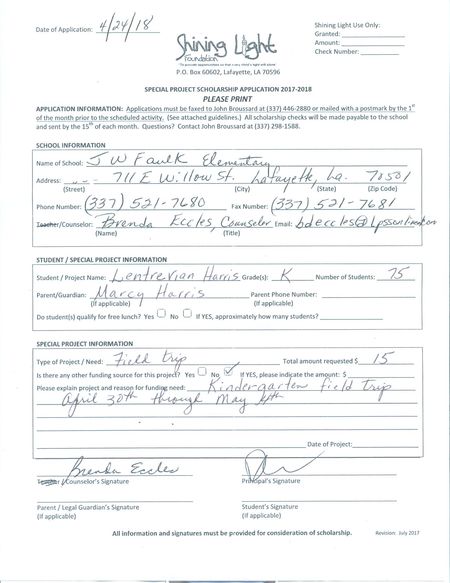 Date of Application: 4/24/18
Shining Light
Foundation
"To provide opportunities so that every child's light will shine"
P.O. Box 60602, Lafayette, LA 70596
Shining Light Use Only:
Granted:
Amount:
Check Number:
SPECIAL PROJECT SCHOLARSHIP APPLICATION 2017-2018
PLEASE PRINT
APPLICATION INFORMATION: Applications must be faxed to John Broussard at (337) 446-2880 or mailed with a postmark by the 1st
of the month prior to the scheduled activity. (See attached guidelines.) All scholarship checks will be made payable to the school
and sent by the 15th of each month. Questions? Contact John Broussard at (337) 298-1588.
SCHOOL INFORMATION
Name of School: J W Faulk Elementary
Address: 711 E Willow St. Lafayette, La. 70501
(Street) (City) (State) (Zip Code)
Phone Number: (337) 521-7680 Fax Number: (337) 521-7681
Teacher/Counselor: Brenda Eccles, Counselor Email:
(Name) (Title)
STUDENT / SPECIAL PROJECT INFORMATION
Student / Project Name: Lentrevian Harris Grade(s): K Number of Students: 75
Parent/Guardian: Marcy Harris Parent Phone Number:
(If applicable) (If applicable)
Do student(s) qualify for free lunch? Yes No If YES, approximately how many students?
SPECIAL PROJECT INFORMATION
Type of Project / Need: Field trip Total amount requested $ 15
Is there any other funding source for this project? Yes No If YES, please indicate the amount: $
Please explain project and reason for funding need: Kindergarten field trip
April 30th through May 4th
Date of Project:
Brenda Eccles
Teacher /Counselor's Signature Principal's Signature
Parent / Legal Guardian's Signature Student's Signature
(If applicable) (If applicable)
All information and signatures must be provided for consideration of scholarship. Revision: July 2017